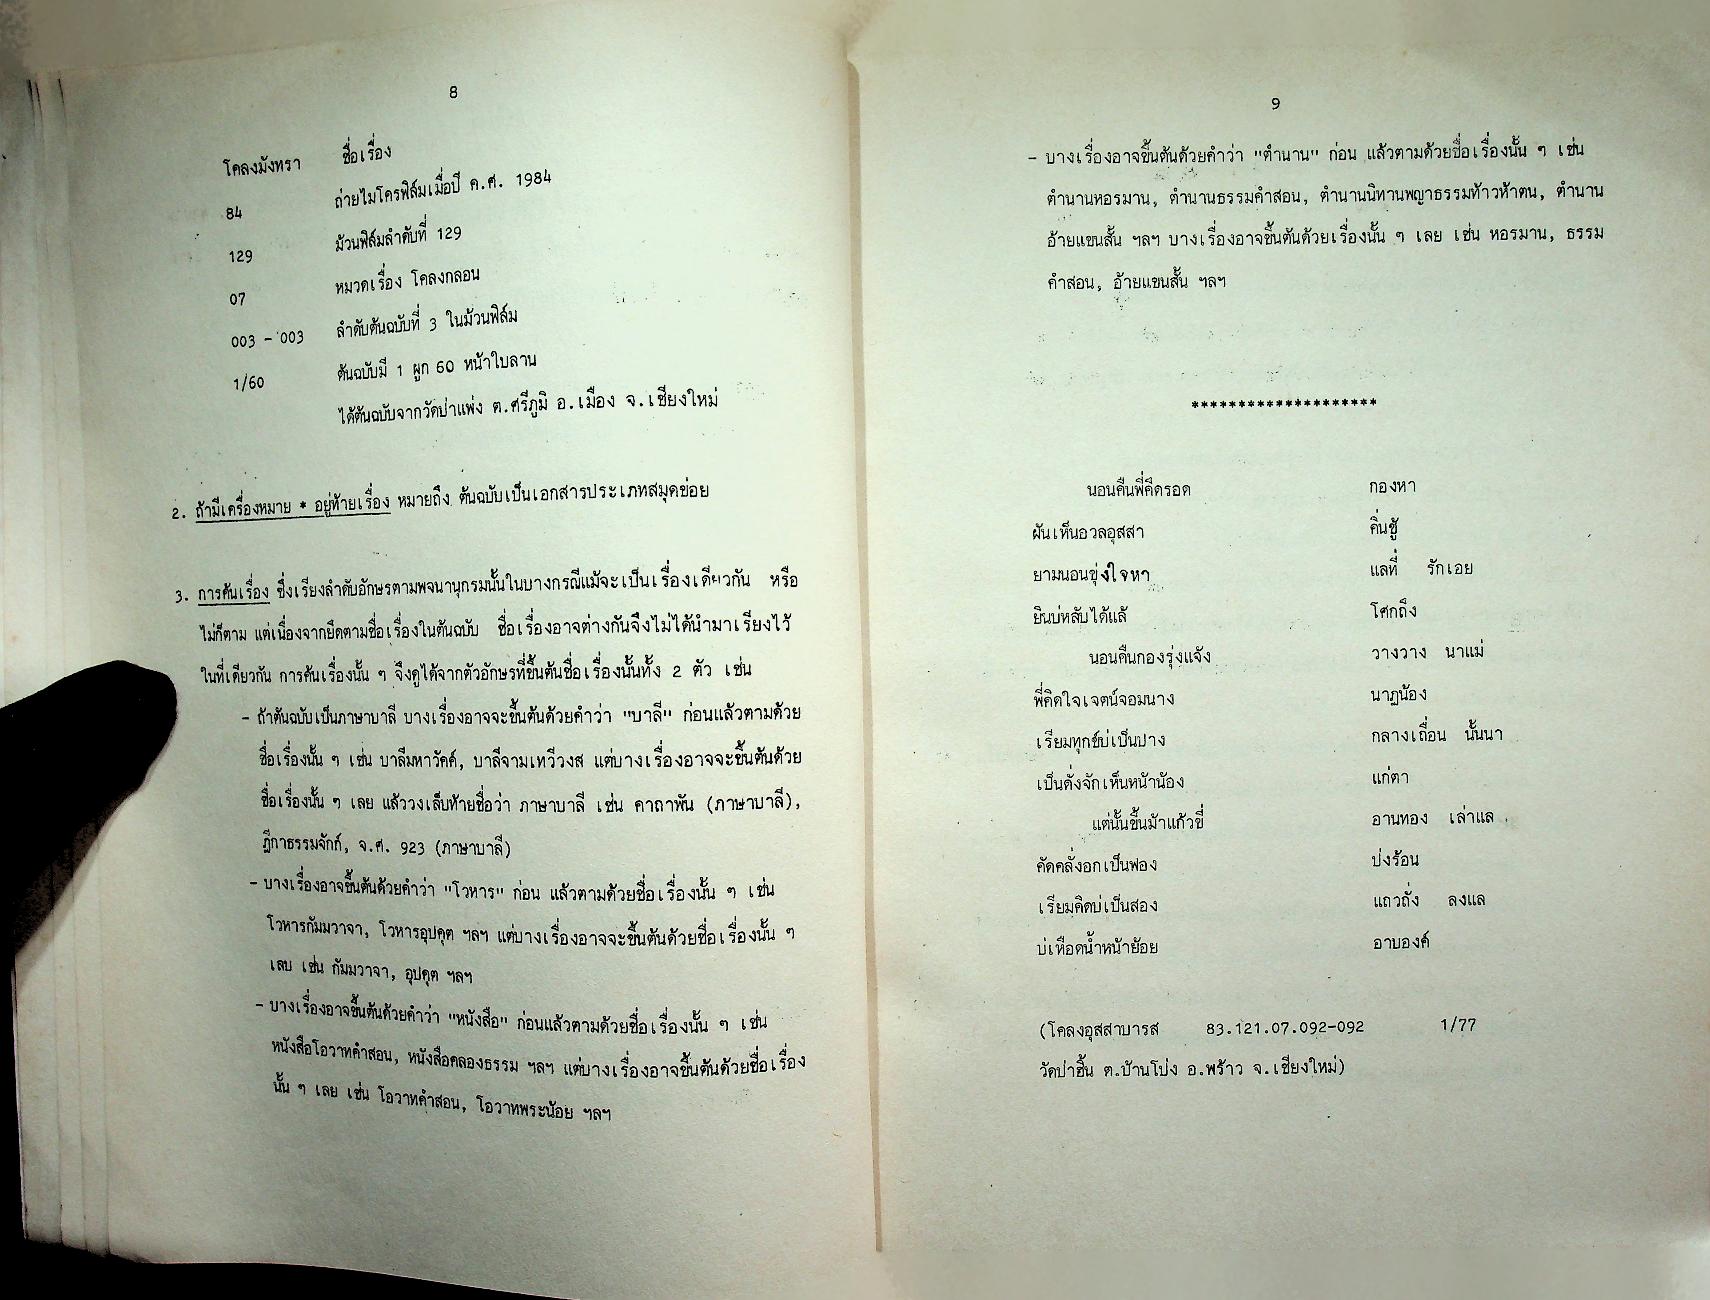 8
โคลงมังทรา ชื่อเรื่อง
84 ถ่ายไมโครฟิล์มเมื่อปี ค.ศ. 1984
129 ม้วนฟิล์มลำดับที่ 129
07 หมวดเรื่อง โคลงกลอน
003 - 003 ลำดับต้นฉบับที่ 3 ในม้วนฟิล์ม
1/60 ต้นฉบับมี 1 ผูก 60 หน้าใบลาน
ได้ต้นฉบับจากวัดป่าแพ่ง ต.ศรีภูมิ อ.เมือง จ.เชียงใหม่
2. ถ้ามีเครื่องหมาย * อยู่ท้ายเรื่อง หมายถึง ต้นฉบับเป็นเอกสารประเภทสมุดข่อย
3. การค้นเรื่อง ซึ่งเรียงลำดับอักษรตามพจนานุกรมนั้นในบางกรณีแม้จะเป็นเรื่องเดียวกัน หรือ
ไม่ก็ตาม แต่เนื่องจากยึดตามชื่อเรื่องในต้นฉบับ ชื่อเรื่องอาจต่างกันจึงไม่ได้นำมาเรียงไว้
ในที่เดียวกัน การค้นเรื่องนั้น ๆ จึงดูได้จากตัวอักษรที่ขึ้นต้นชื่อเรื่องนั้นทั้ง 2 ตัว เช่น
- ถ้าต้นฉบับเป็นภาษาบาลี บางเรื่องอาจจะขึ้นต้นด้วยคำว่า "บาลี" ก่อนแล้วตามด้วย
ชื่อเรื่องนั้น ๆ เช่น บาลีมหาวัคค์, บาลีจามเทวีวงส แต่บางเรื่องอาจจะขึ้นต้นด้วย
ชื่อเรื่องนั้น ๆ เลย แล้ววงเล็บท้ายชื่อว่า ภาษาบาลี เช่น คาถาพัน (ภาษาบาลี),
ฎีกาธรรมจักก์, จ.ศ. 923 (ภาษาบาลี)
- บางเรื่องอาจขึ้นต้นด้วยคำว่า "โวหาร" ก่อน แล้วตามด้วยชื่อเรื่องนั้น ๆ เช่น
โวหารกัมมวาจา, โวหารอุปคุต ฯลฯ แต่บางเรื่องอาจจะขึ้นต้นด้วยชื่อเรื่องนั้น ๆ
เลย เช่น กัมมวาจา, อุปคุต ฯลฯ
- บางเรื่องอาจขึ้นต้นด้วยคำว่า "หนังสือ" ก่อนแล้วตามด้วยชื่อเรื่องนั้น ๆ เช่น
หนังสือโอวาทคำสอน, หนังสือคลองธรรม ฯลฯ แต่บางเรื่องอาจขึ้นต้นด้วยชื่อเรื่อง
นั้น ๆ เลย เช่น โอวาทคำสอน, โอวาทพระน้อย ฯลฯ
9
- บางเรื่องอาจขึ้นต้นด้วยคำว่า "ตำนาน" ก่อน แล้วตามด้วยชื่อเรื่องนั้น ๆ เช่น
ตำนานหอรมาน, ตำนานธรรมคำสอน, ตำนานนิทานพญาธรรมท้าวห้าตน, ตำนาน
อ้ายแขนสั้น ฯลฯ บางเรื่องอาจขึ้นต้นด้วยเรื่องนั้น ๆ เลย เช่น หอรมาน, ธรรม
คำสอน, อ้ายแขนสั้น ฯลฯ
********************
นอนคืนพี่คึดรอด กองหา
ผันเห็นอวลอุสสา คิ่นชู้
ยามนอนขุ่งใจหา แลที่ รักเอย
ยินบ่หลับได้แล้ โศกถึง
นอนคืนกองรุ่งแจ้ง วางวาง นาแม่
พี่คิดใจเจตน์จอมนาง นาฏน้อง
เรียมทุกข์บ่เป็นปาง กลางเถื่อน นั้นนา
เป็นดั่งจักเห็นหน้าน้อง แก่ตา
แต่นั้นขึ้นม้าแก้วขี่ อานทอง เล่าแล
คัดคลั่งอกเป็นฟอง บ่งร้อน
เรียมคิดบ่เป็นสอง แถวถั่ง ลงแล
บ่เหือดน้ำหน้าย้อย อาบองค์
(โคลงอุสสาบารส 83.121.07.092-092 1/77
วัดป่าฮิ้น ต.บ้านโป่ง อ.พร้าว จ.เชียงใหม่)